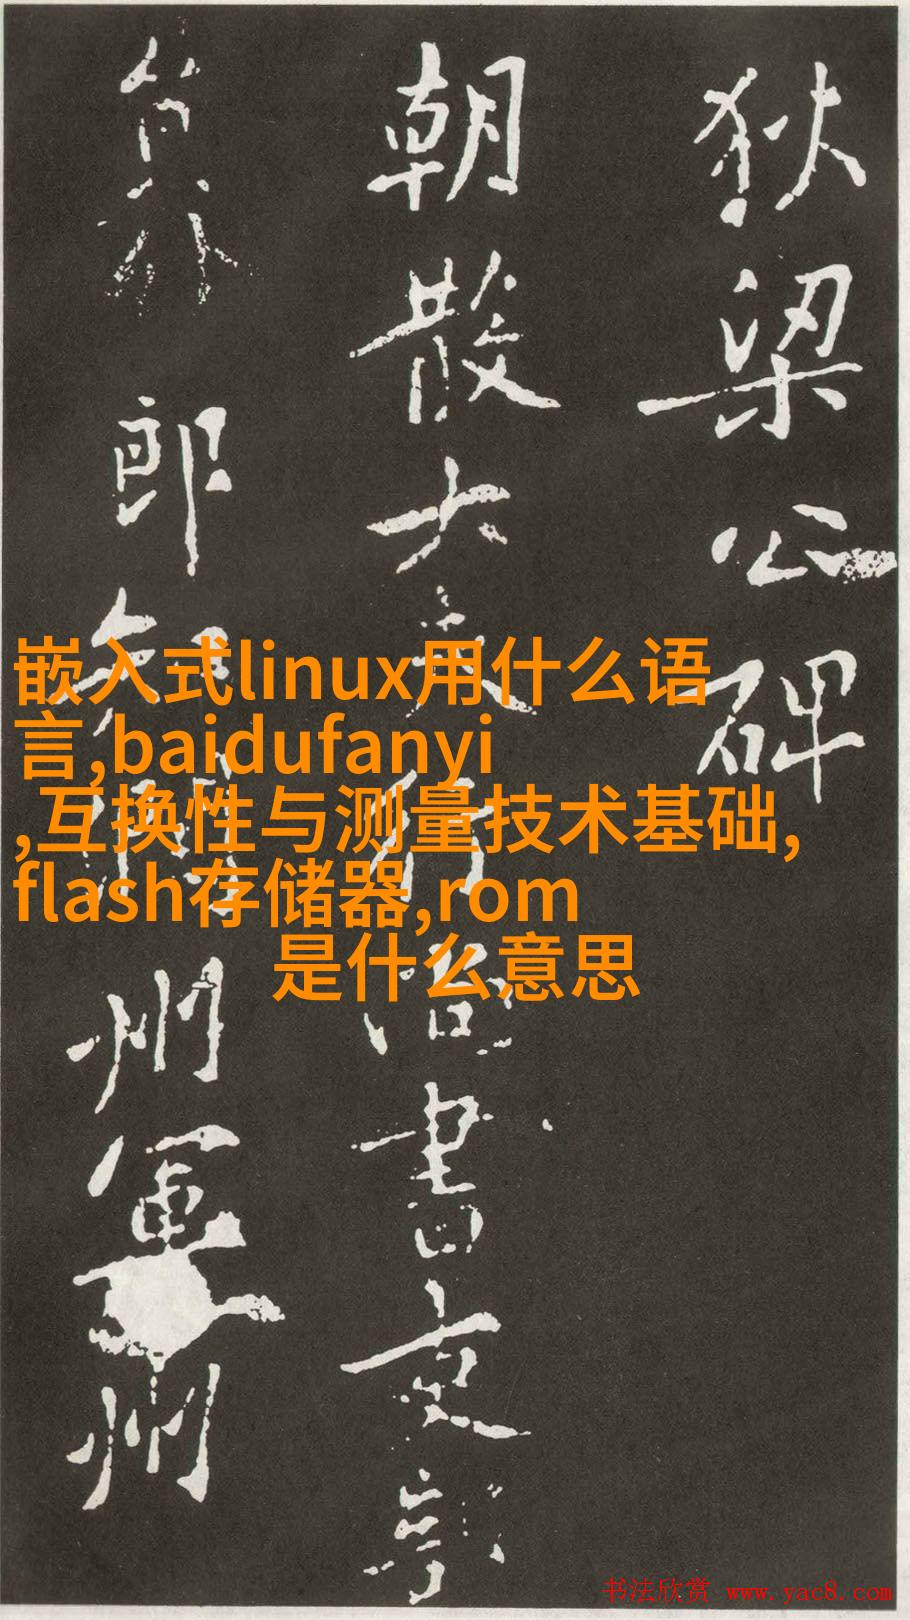 狄梁公碑
朝散大夫行尚書吏部
員外郎知潤州軍州
嵌入式linux用什么语
言,baidufanyi
,互换性与测量技术基础,
flash存储器,rom
是什么意思
书法欣赏 www.yac8.com